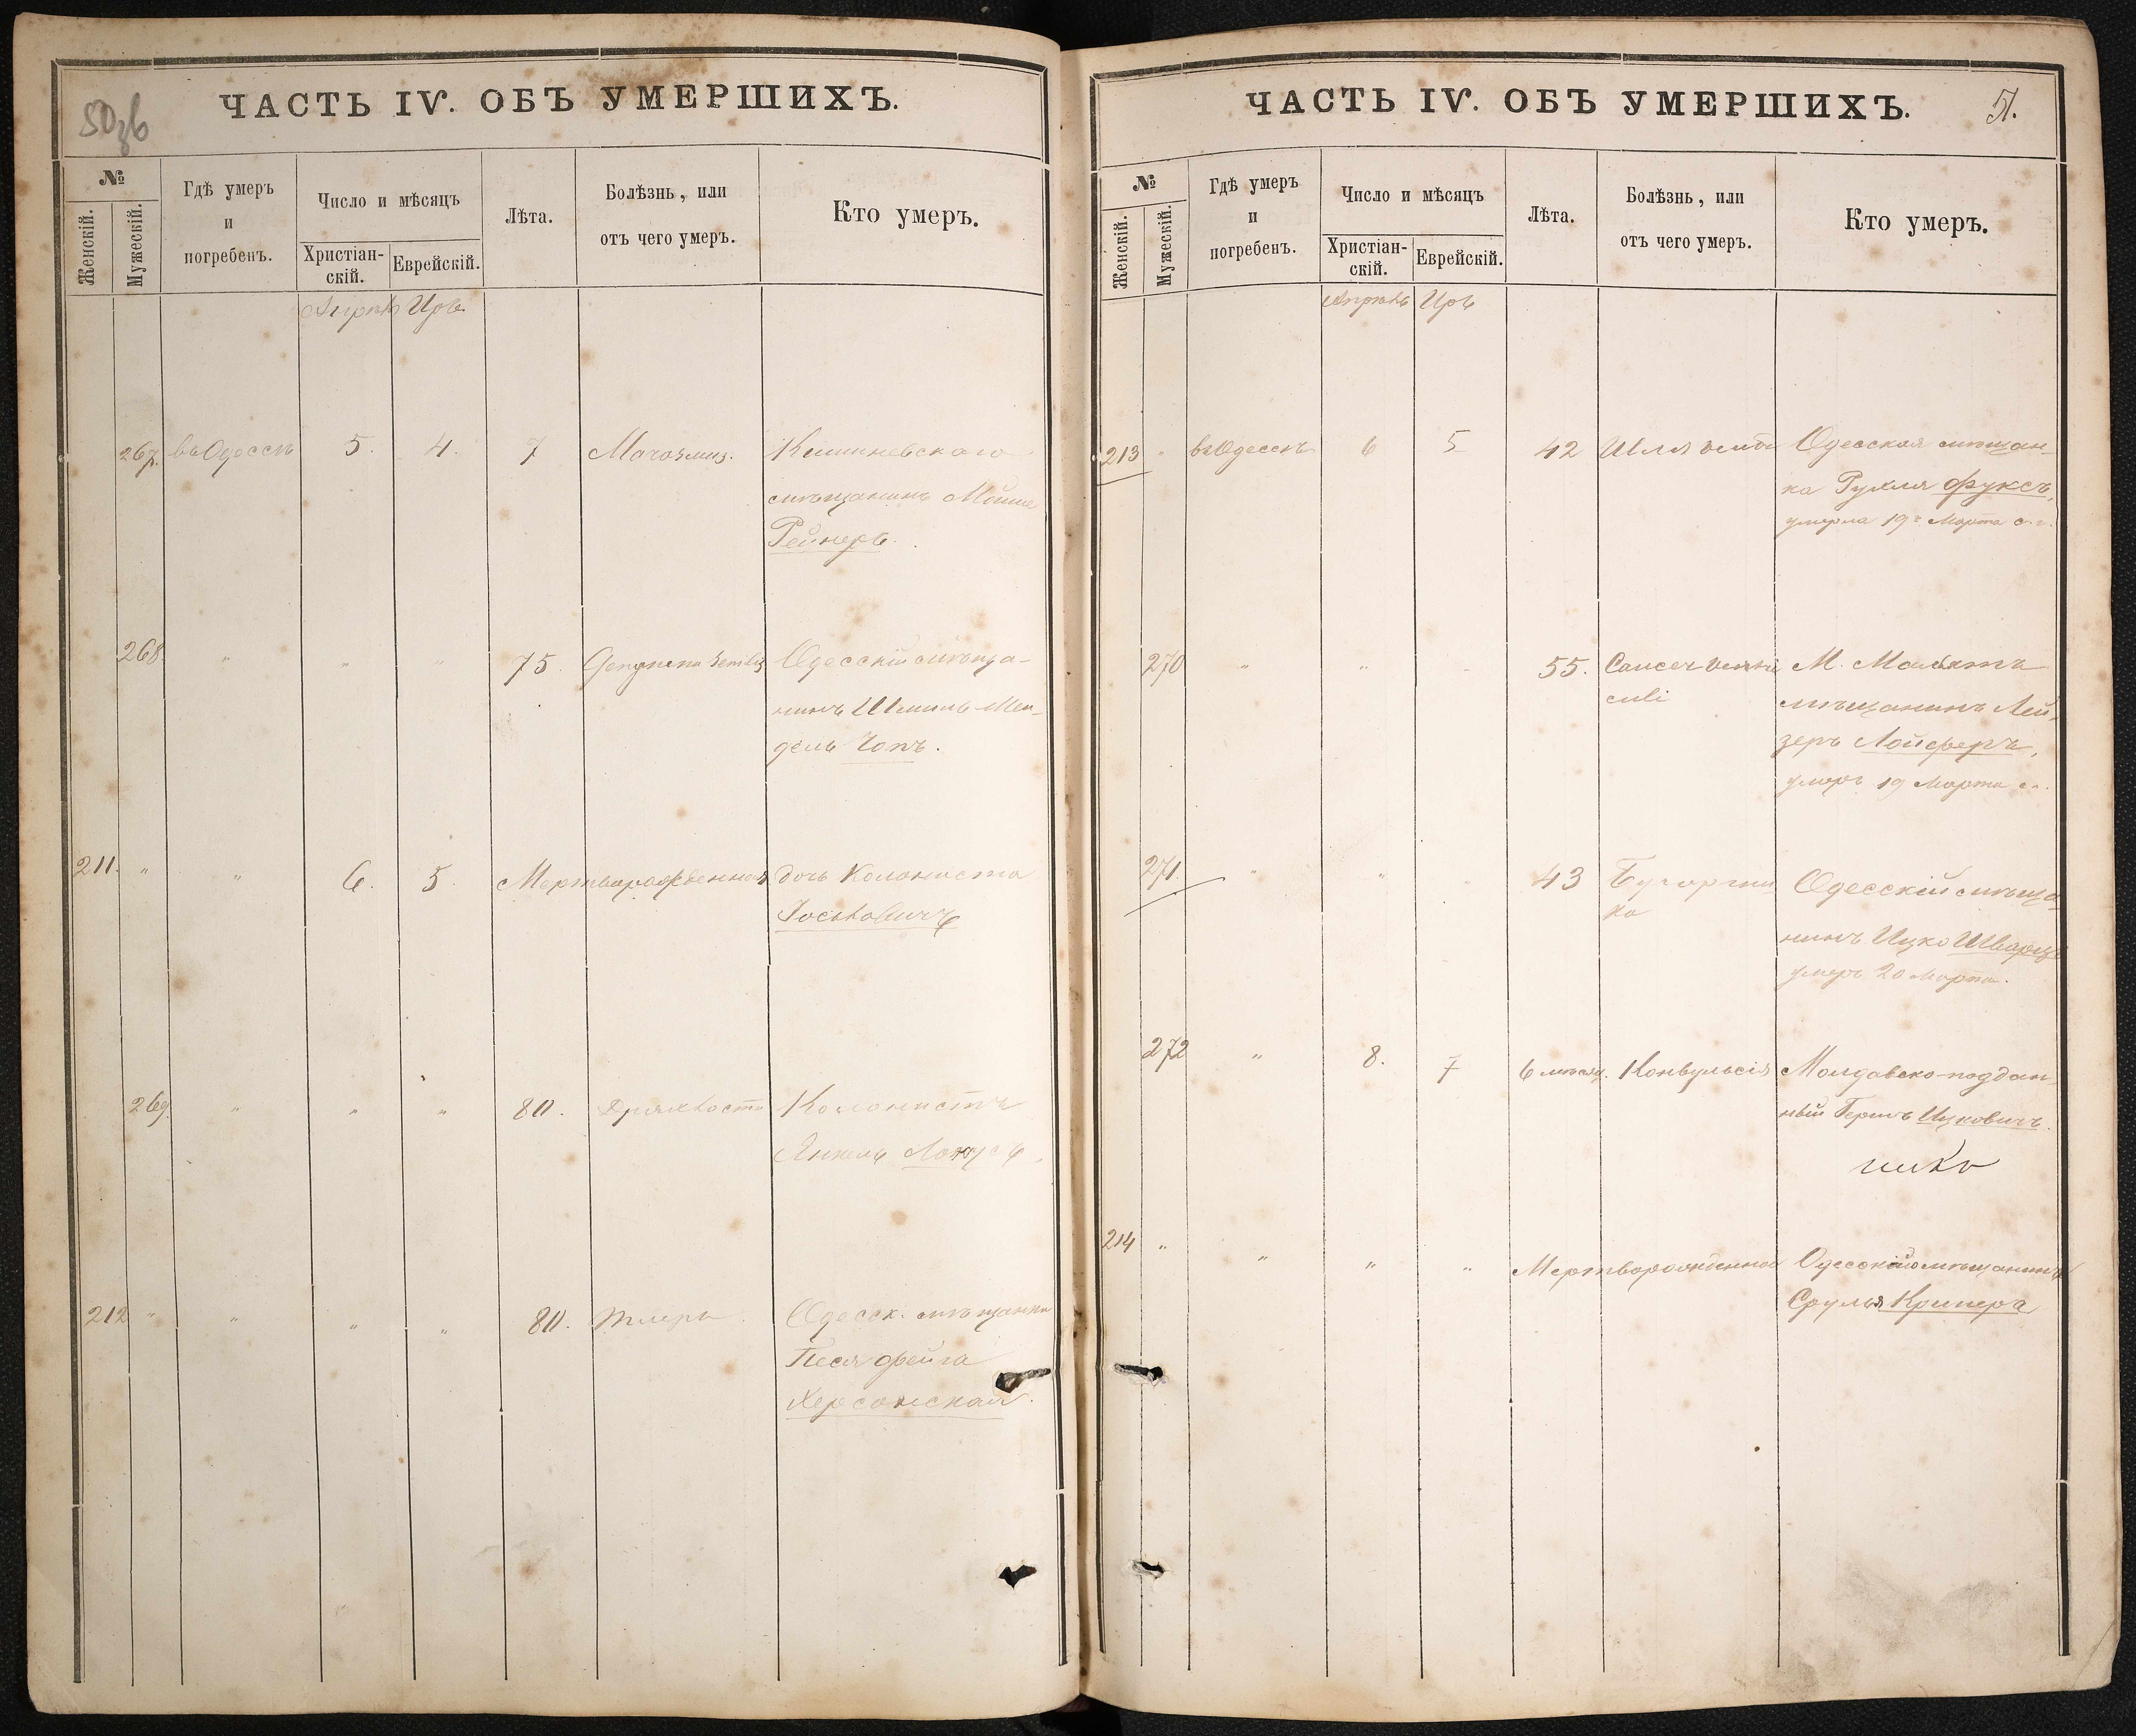 50зв
ЧАСТЬ IV. ОБЪ УМЕРШИХЪ.
№
Женскій.
Мужескій.
Гдѣ умеръ
и
погребенъ.
Число и мѣсяцъ
Христіан-
скій.
Еврейскій.
Лѣта.
Болѣзнь, или
отъ чего умеръ.
Кто умеръ.
Апрѣль Іръ
267. въ Одессѣ 5. 4. 7 Кишиневскаго
мѣщанинъ Мойше
Рейнеръ.
268. " " " 75. Gangrena senilis Одесскій мѣща-
нинъ Шмиль-Мен-
дель Чопъ.
211. " " 6. 5. Мертворожденная дочь Колониста
Іоськовичъ
269. " " " 80. Дряхлость Колонистъ
Янкель
212 " " " " 80. Одесск. мѣщанка
Песя Фейга
Херсонская.
ЧАСТЬ IV. ОБЪ УМЕРШИХЪ.
51.
№
Женскій.
Мужескій.
Гдѣ умеръ
и
погребенъ.
Число и мѣсяцъ
Христіан-
скій.
Еврейскій.
Лѣта.
Болѣзнь, или
отъ чего умеръ.
Кто умеръ.
Апрѣль Іръ
213 " въ Одессѣ 6 5 42 Одесская мѣщан-
ка Рухля Фуксъ,
умерла 19го Марта с. г.
270 " " " 55. Cancer ventri М. Маляты
culi мѣщанинъ Лей-
зеръ Лойферъ,
умеръ 19 Марта с. г.
271. " " " 43 Бугорчат
ка Одесскій мѣща-
нинъ Ицко Шварцъ
умеръ 20 Марта.
272 " 8. 7 6 мѣсяц. Конвульсія Молдавско-поддан-
ный Гершъ Ицковичъ.
214 " " " " Мертворожденная Одесскаго мѣщанина
Сруля Кримера